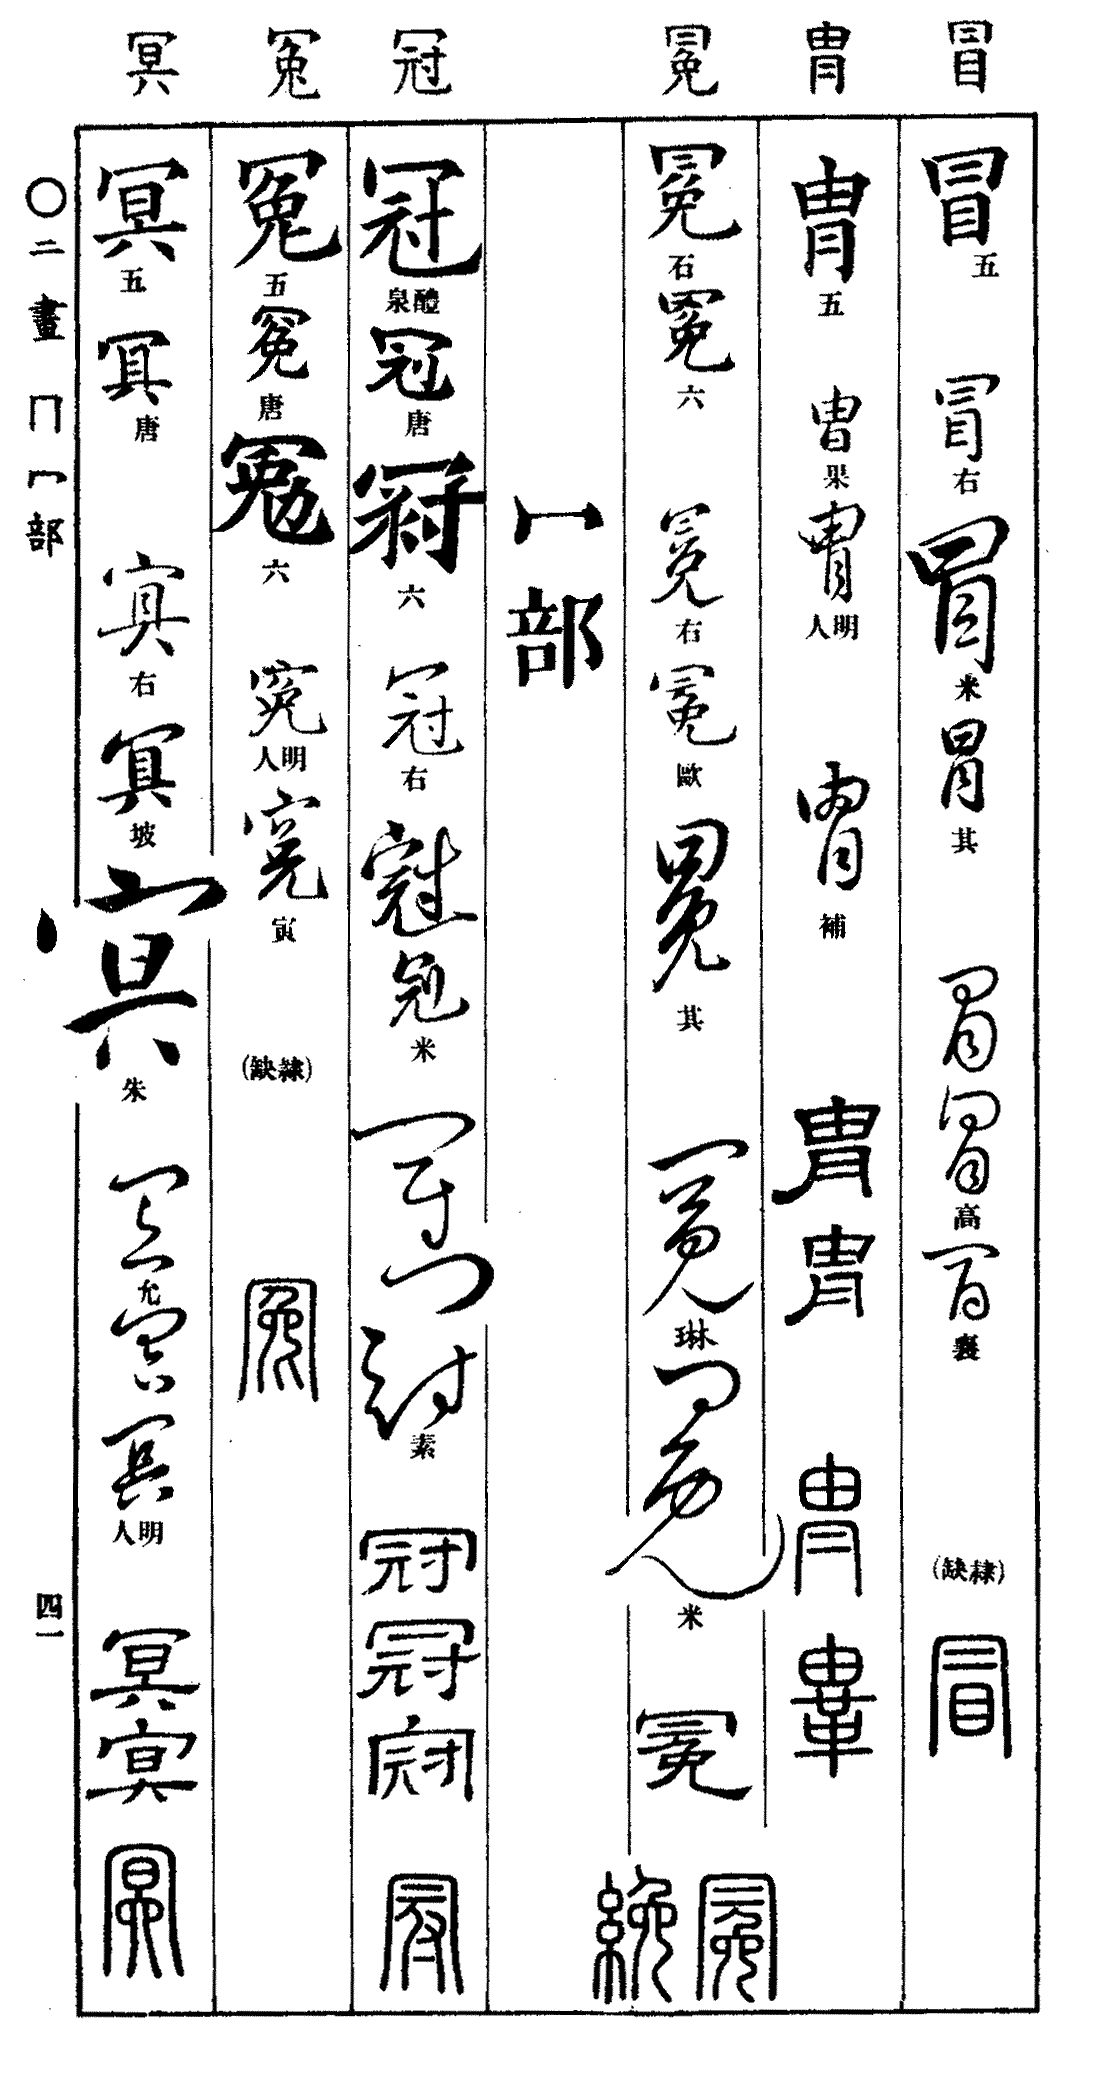 冒 冑 冕 冠 冤 冥
冒 五
冒 右
冒 米
冒 其
冒 冒 高
冒 襄
(缺隸)
冒
冑 五
冑 果
冑 明人
冑 補
冑 冑
冑 冑
冕 石
冕 六
冕 右
冕 歐
冕 其
冕 琳
冕 米
冕
冕 絻
冖部
冠 醴泉
冠 唐
冠 六
冠 右
冠 冠 米
冠 冠 素
冠 冠 冠
冠
冤 五
冤 唐
冤 六
冤 明人
冤 寅
(缺隸)
冤
冥 五
冥 唐
冥 右
冥 坡
冥 朱
冥 允
冥 冥 明人
冥 冥
冥
〇二畫 冂冖部
四一